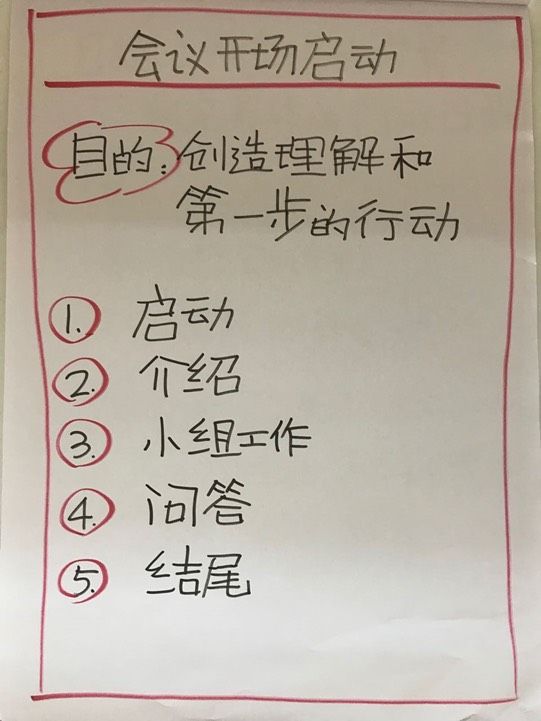 会议开场启动
目的：创造理解和
第一步的行动
1. 启动
2. 介绍
3. 小组工作
4. 问答
5. 结尾